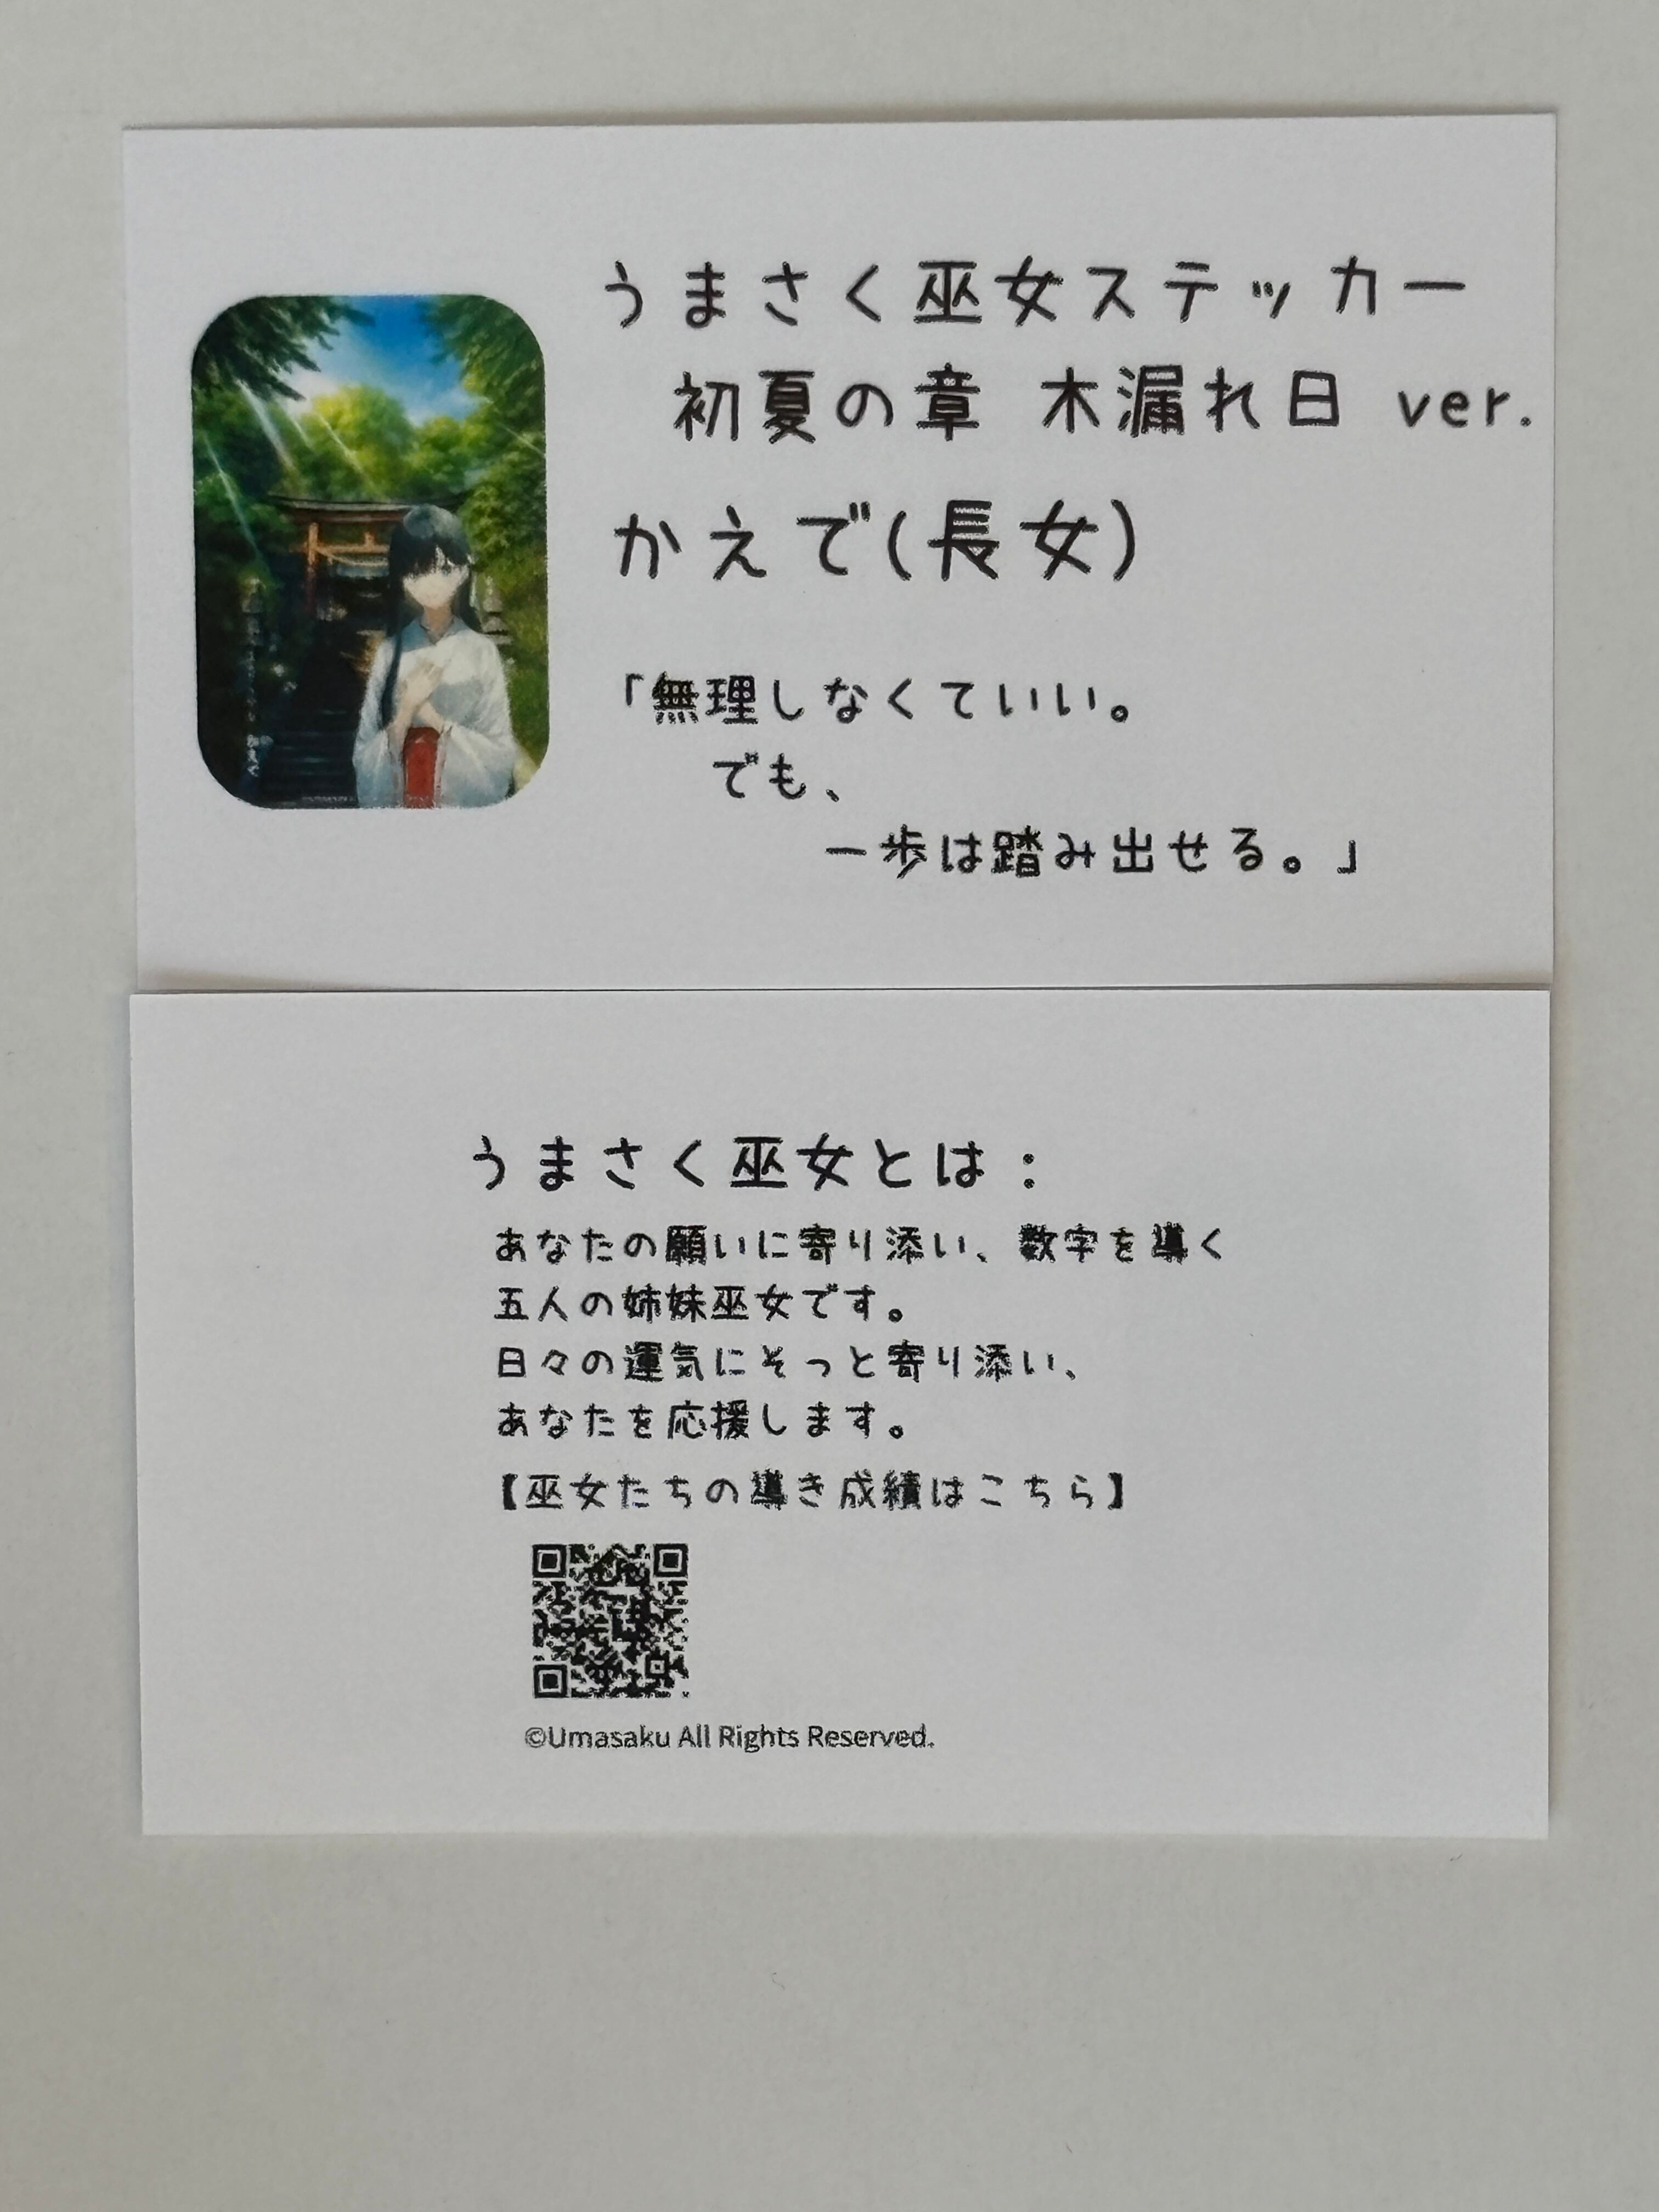 うまさく巫女ステッカー
初夏の章 木漏れ日 ver.
かえで(長女)
「無理しなくていい。
でも、
一歩は踏み出せる。」
うまさく巫女とは：
あなたの願いに寄り添い、数字を導く
五人の姉妹巫女です。
日々の運気にそっと寄り添い、
あなたを応援します。
【巫女たちの導き成績はこちら】
©Umasaku All Rights Reserved.